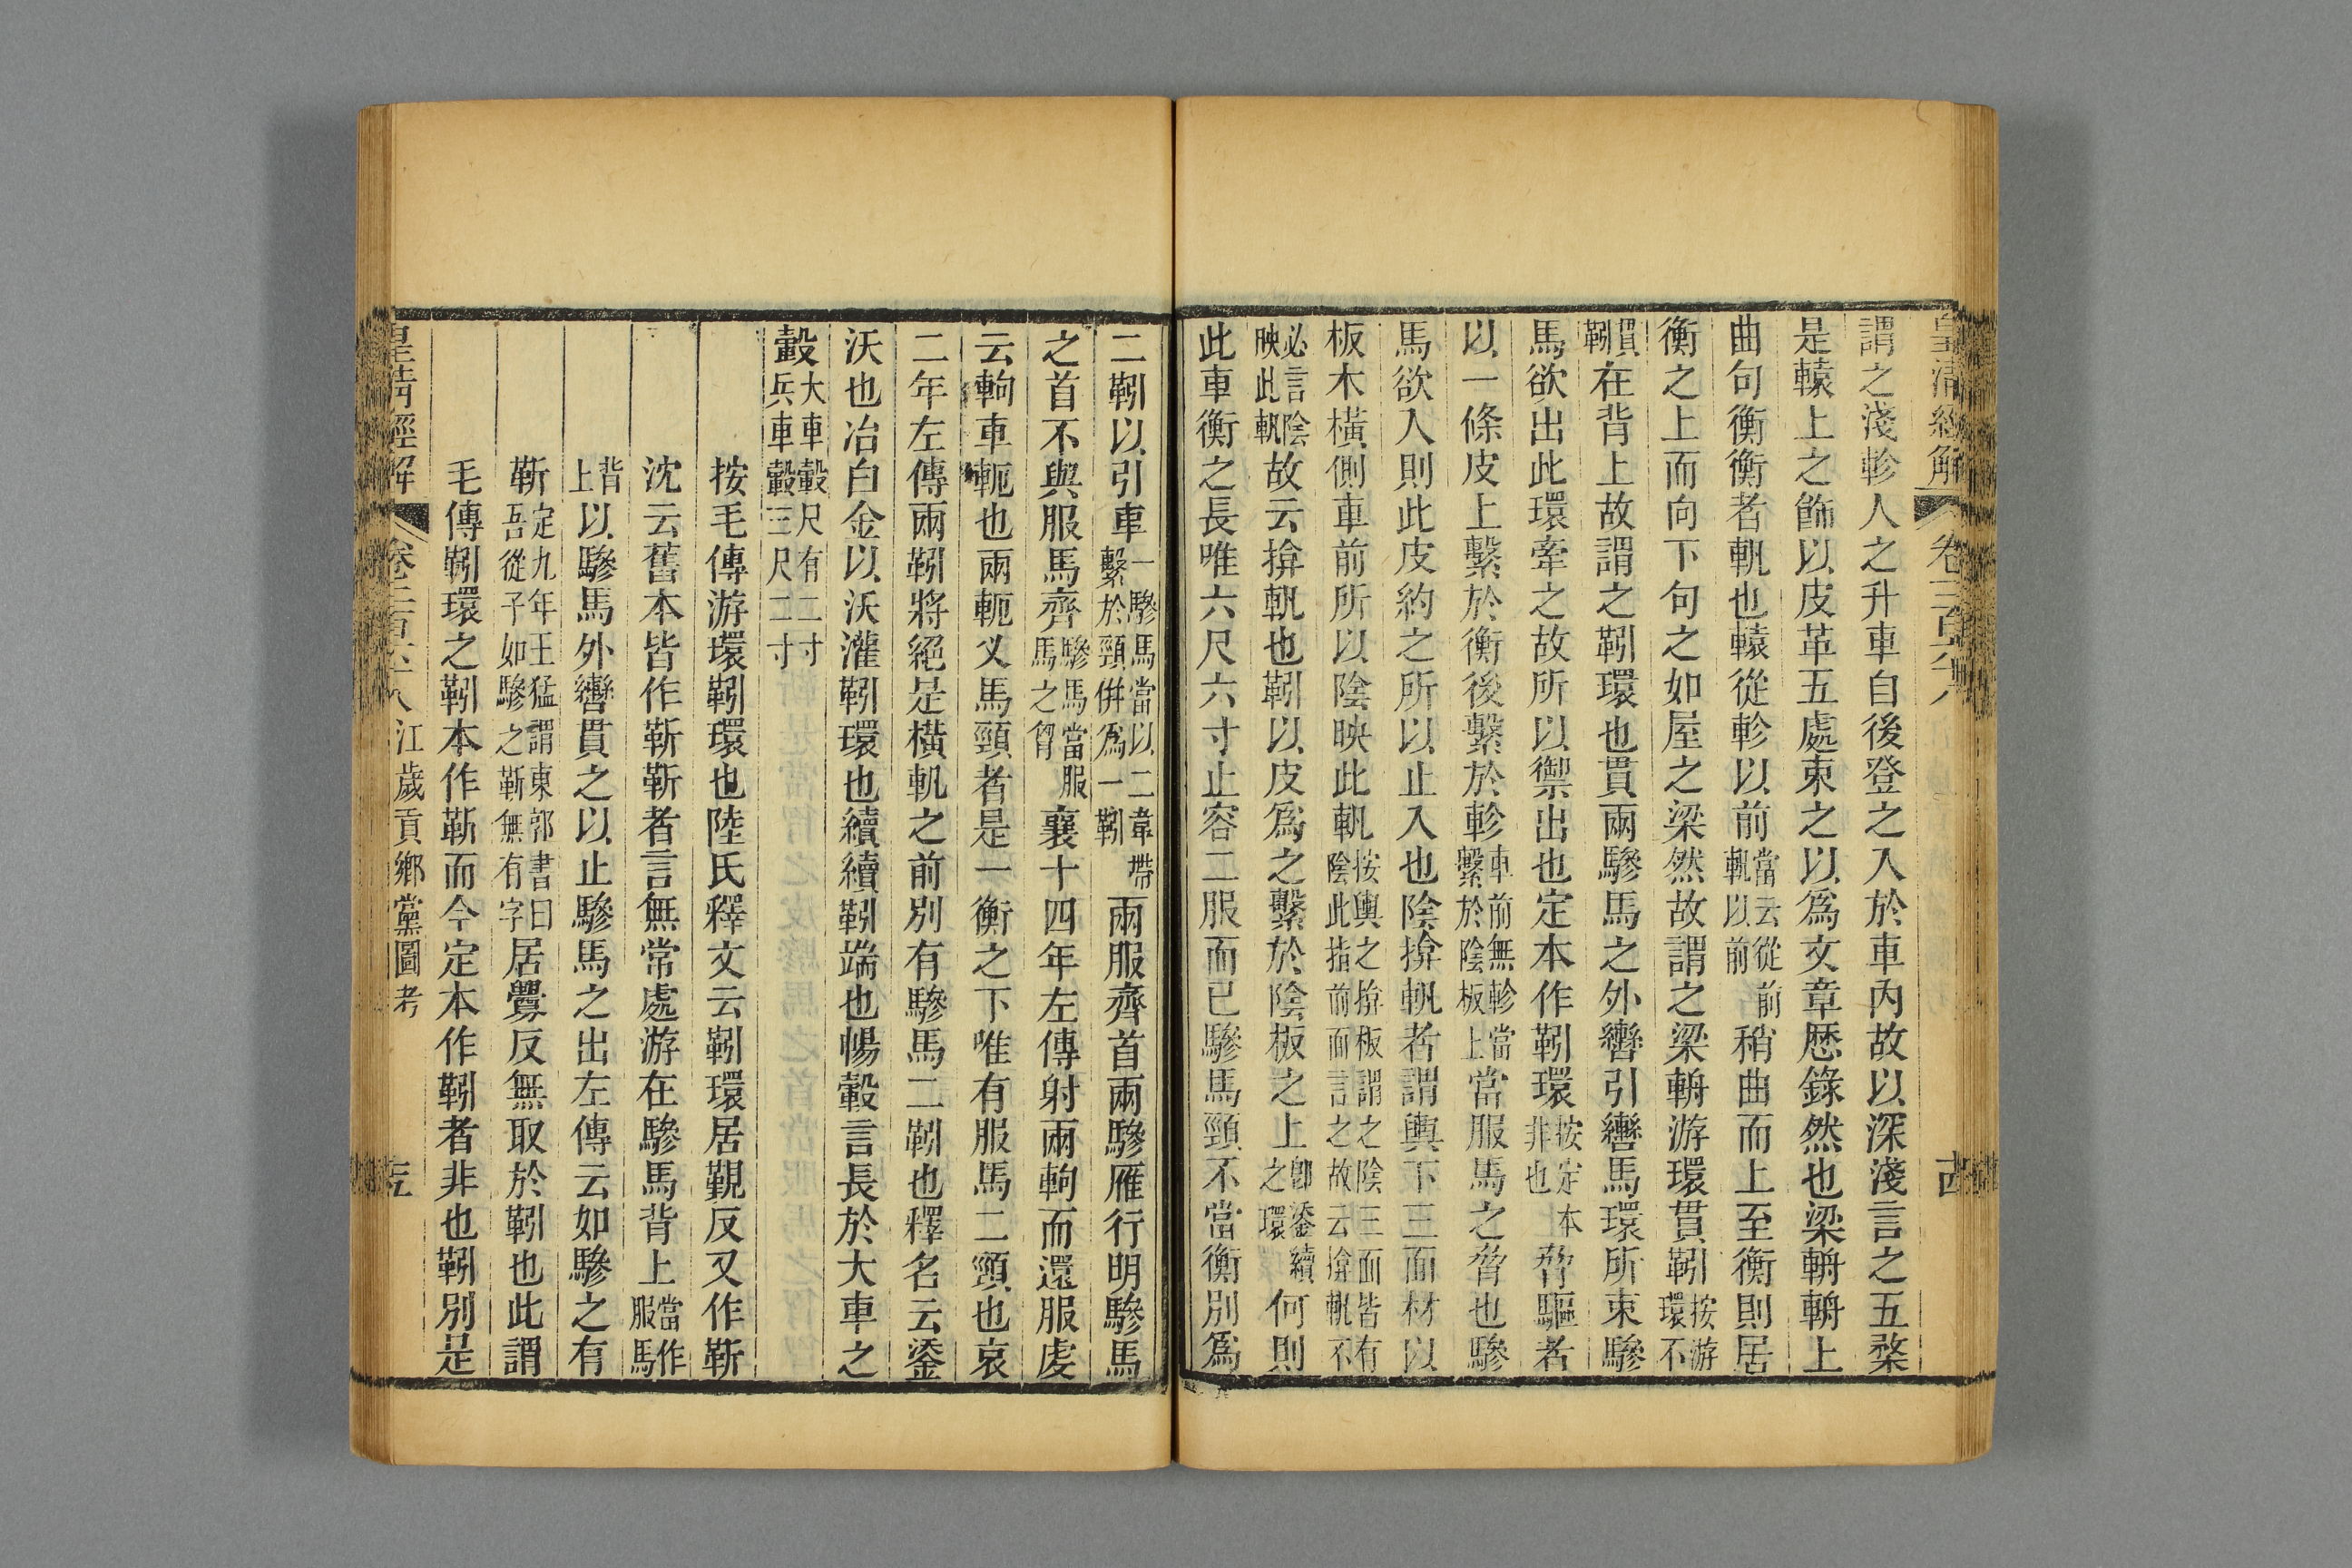 皇清經解 卷二百六十八
謂之淺軫人之升車自後登之入於車內故以深淺言之五楘
是轅上之飾以皮革五處束之以爲文章歷錄然也梁輈輈上
曲句衡衡者軏也轅從軫以前當云從前軓以前稍曲而上至衡則居
衡之上而向下句之如屋之梁然故謂之梁輈游環貫靷按游環不
貫靷在背上故謂之靷環也貫兩驂馬之外轡引轡馬環所束驂
馬欲出此環牽之故所以禦出也定本作靷環按定本非也脅驅者
以一條皮上繫於衡後繫於軫車前無軫當繫於陰板上當服馬之脅也驂
馬欲入則此皮約之所以止入也陰揜軓者謂輿下三面材以
板木橫側車前所以陰映此軓按輿之揜板謂之陰三面皆有陰此指前面言之故云揜軓不
必言陰映此軓故云揜軓也靷以皮爲之繫於陰板之上卽鋈續之環何則
此車衡之長唯六尺六寸止容二服而已驂馬頸不當衡別爲
二靷以引車一驂馬當以二韋帶繫於頸倂爲一靷兩服齊首兩驂雁行明驂馬
之首不與服馬齊驂馬當服馬之胷襄十四年左傳射兩軥而還服虔
云軥車軛也兩軛叉馬頸者是一衡之下唯有服馬二頸也哀
二年左傳兩靷將絕是橫軓之前別有驂馬二靷也釋名云鋈
沃也冶白金以沃灌靷環也續續靷端也暢轂言長於大車之
轂大車轂尺有二寸兵車轂三尺二寸
按毛傳游環靷環也陸氏釋文云靷環居覲反又作靳
沈云舊本皆作靳靳者言無常處游在驂馬背上當作服馬
背上以驂馬外轡貫之以止驂馬之出左傳云如驂之有
靳定九年王猛謂東郭書曰吾從子如驂之靳無有字居釁反無取於靷也此謂
毛傳靷環之靷本作靳而今定本作靷者非也靷別是
皇清經解 卷二百六十八 江歲貢鄉黨圖考